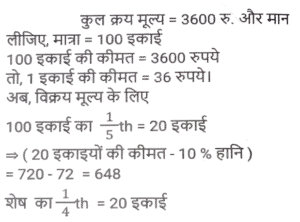 कुल क्रय मूल्य = 3600 रु. और मान
लीजिए, मात्रा = 100 इकाई
100 इकाई की कीमत = 3600 रुपये
तो, 1 इकाई की कीमत = 36 रुपये।
अब, विक्रय मूल्य के लिए
100 इकाई का 1/5 th = 20 इकाई
⇒ ( 20 इकाइयों की कीमत - 10 % हानि )
= 720 - 72 = 648
शेष का 1/4 th = 20 इकाई